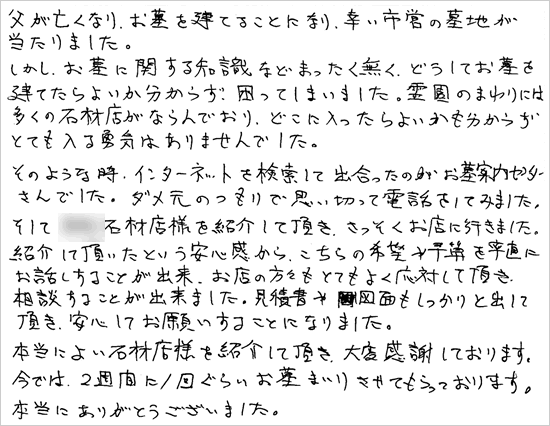 父が亡くなり、お墓を建てることになり、幸い市営の墓地が
当たりました。
しかし、お墓に関する知識などまったく無く、どうしてお墓を
建てたらよいか分からず、困ってしまいました。霊園のまわりには
多くの石材店がならんでおり、どこに入ったらよいかも分からず
とても入る勇気はありませんでした。
そのような時、インターネットを検索して出合ったのが お墓案内センター
さんでした。ダメ元のつもりで思い切って電話をしてみました。
そして 石材店様を紹介して頂き、さっそくお店に行きました。
紹介して頂いたという安心感から、こちらの希望や予算を率直に
お話しすることが出来、お店の方々もとてもよく応対して頂き、
相談することが出来ました。見積書や図面もしっかりと出して
頂き、安心してお願いすることになりました。
本当によい石材店様を紹介して頂き、大変感謝しております。
今では、2週間に1回ぐらいお墓まいりさせてもらっております。
本当にありがとうございました。